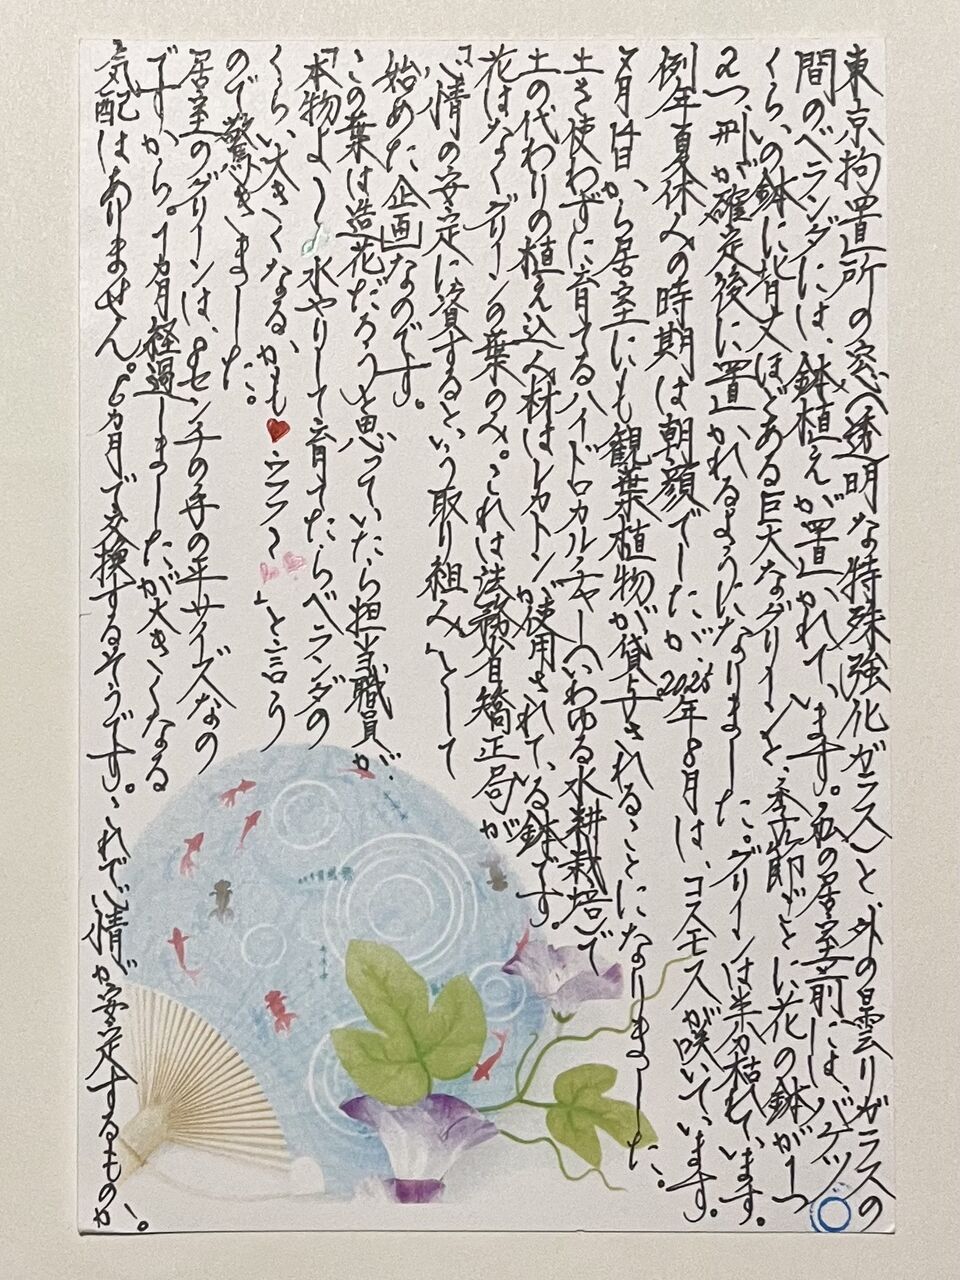 東京拘置所の窓(透明な特殊強化ガラス)と外の曇りガラスの
間のベランダには、鉢植えが置かれています。私の居室前には、バケツ
くらいの鉢に背丈ほどある巨大なグリーンと、季節ごとに花の鉢が1つ
2つ、刑が確定後に置かれるようになりました。グリーンは半分枯れています。
例年夏休みの時期は朝顔でしたが、2025年8月は、コスモスが咲いています。
7月14日から居室にも観葉植物が貸与されることになりました。
土を使わずに育てるハイドロカルチャー(いわゆる水耕栽培)で
土の代わりの植え込み材はレカトンが使用されている鉢です。
花はなくグリーンの葉のみ。これは法務省矯正局が
「心情の安定に資するという取り組み」として
始めた企画なのです。
この葉は造花だろうと思っていたら担当職員が、
「本物よ〜水やりして育てたらベランダの
くらい大きくなるかも♥ウフフ〜」と言う
ので驚きました。
居室のグリーンは、8センチの手の平サイズなの
ですから。1ヵ月経過しましたが大きくなる
気配はありません。6ヵ月で交換するそうです。これで心情が安定するものか。